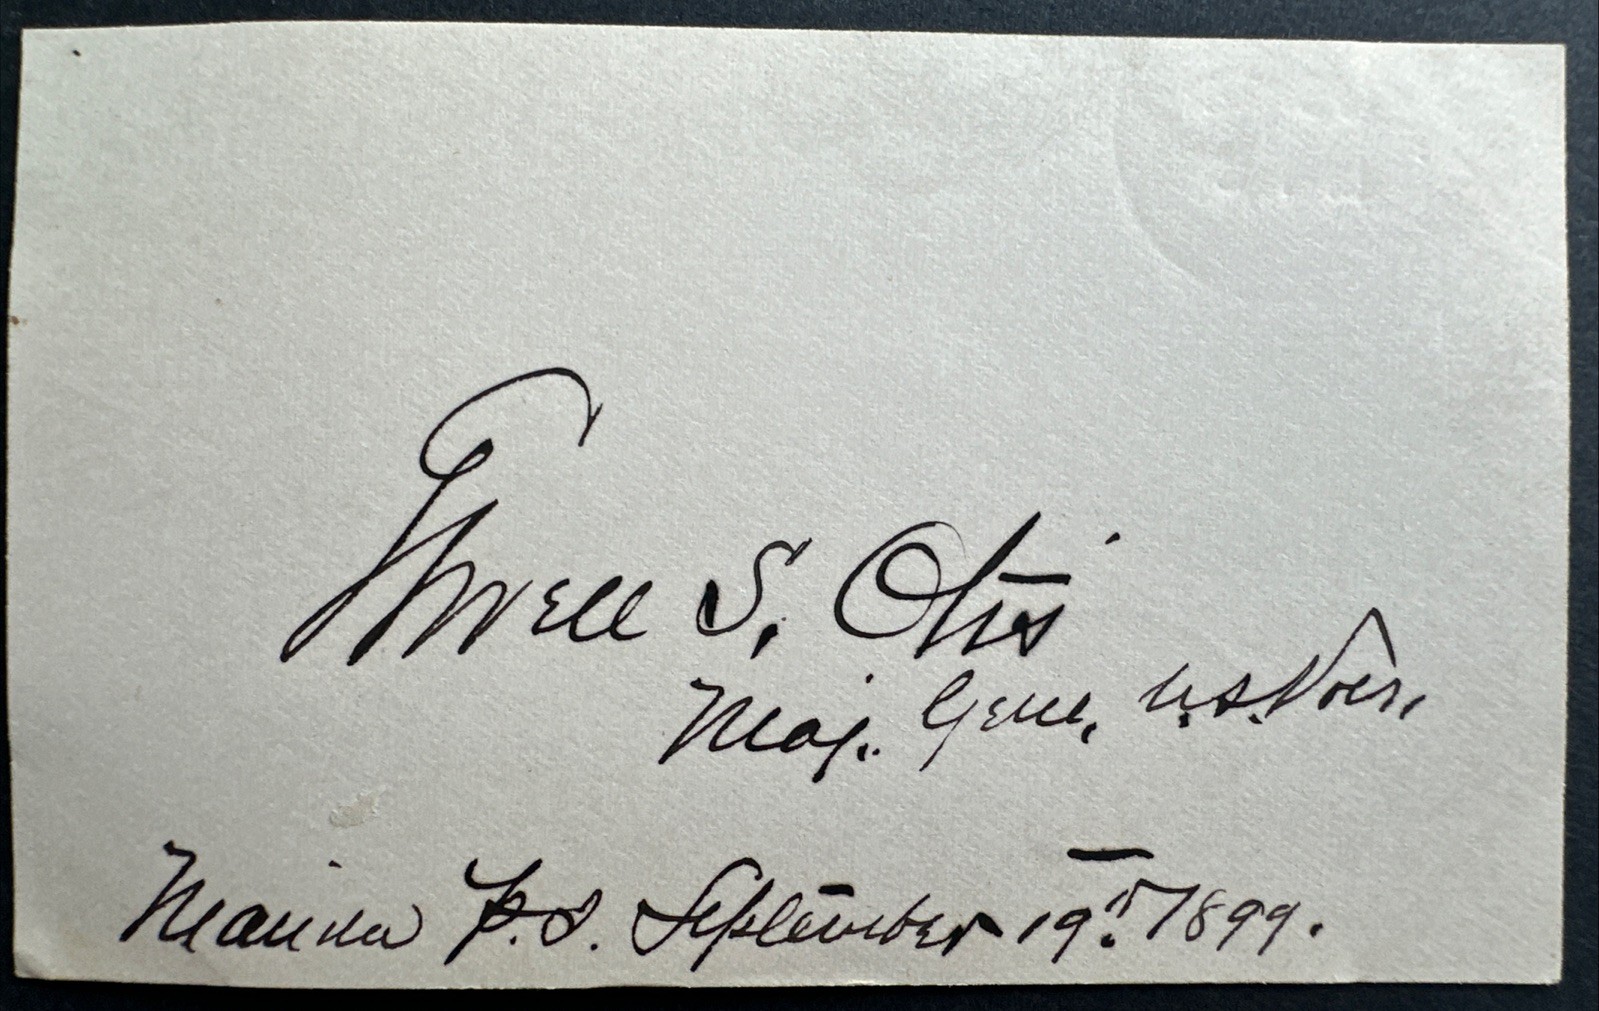 Elwell S. Otis
Maj. Genl. U.S. Vols.
Manila P.I. September 19th 1899.